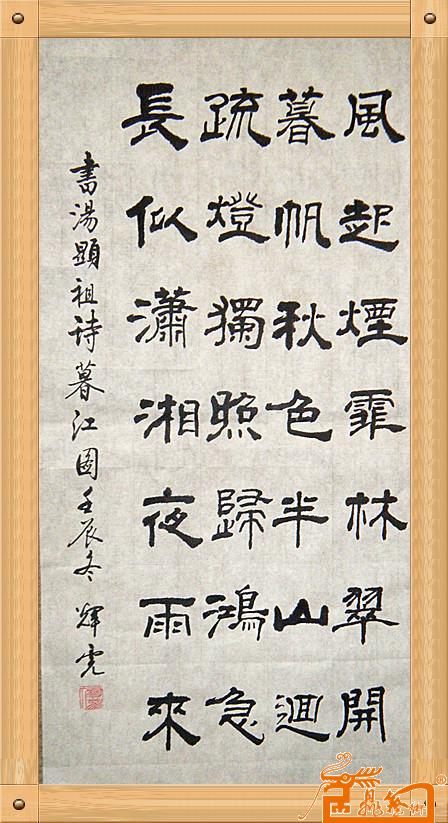 風起煙霏林翠開
暮帆秋色半山迴
疏燈獨照歸鴻急
長似瀟湘夜雨來
書湯顯祖詩暮江圖壬辰冬 輝虎